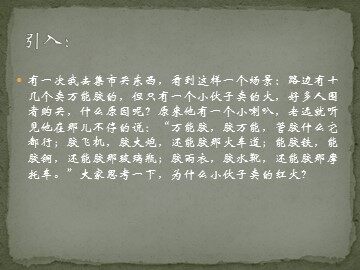 引入：
有一次我去集市买东西，看到这样一个场景：路边有十
几个卖万能胶的，但只有一个小伙子卖的火，好多人围
着购买，什么原因呢？原来他有一个小喇叭，老远就听
见他在那儿不仔的说：“万能胶，胶万能，管胶什么它
都行；胶飞机，胶大炮，还能胶那火车道；能胶铁，能
胶钢，还能胶那玻璃瓶；胶雨衣，胶水靴，还能胶那摩
托车。”大家思考一下，为什么小伙子卖的红火？